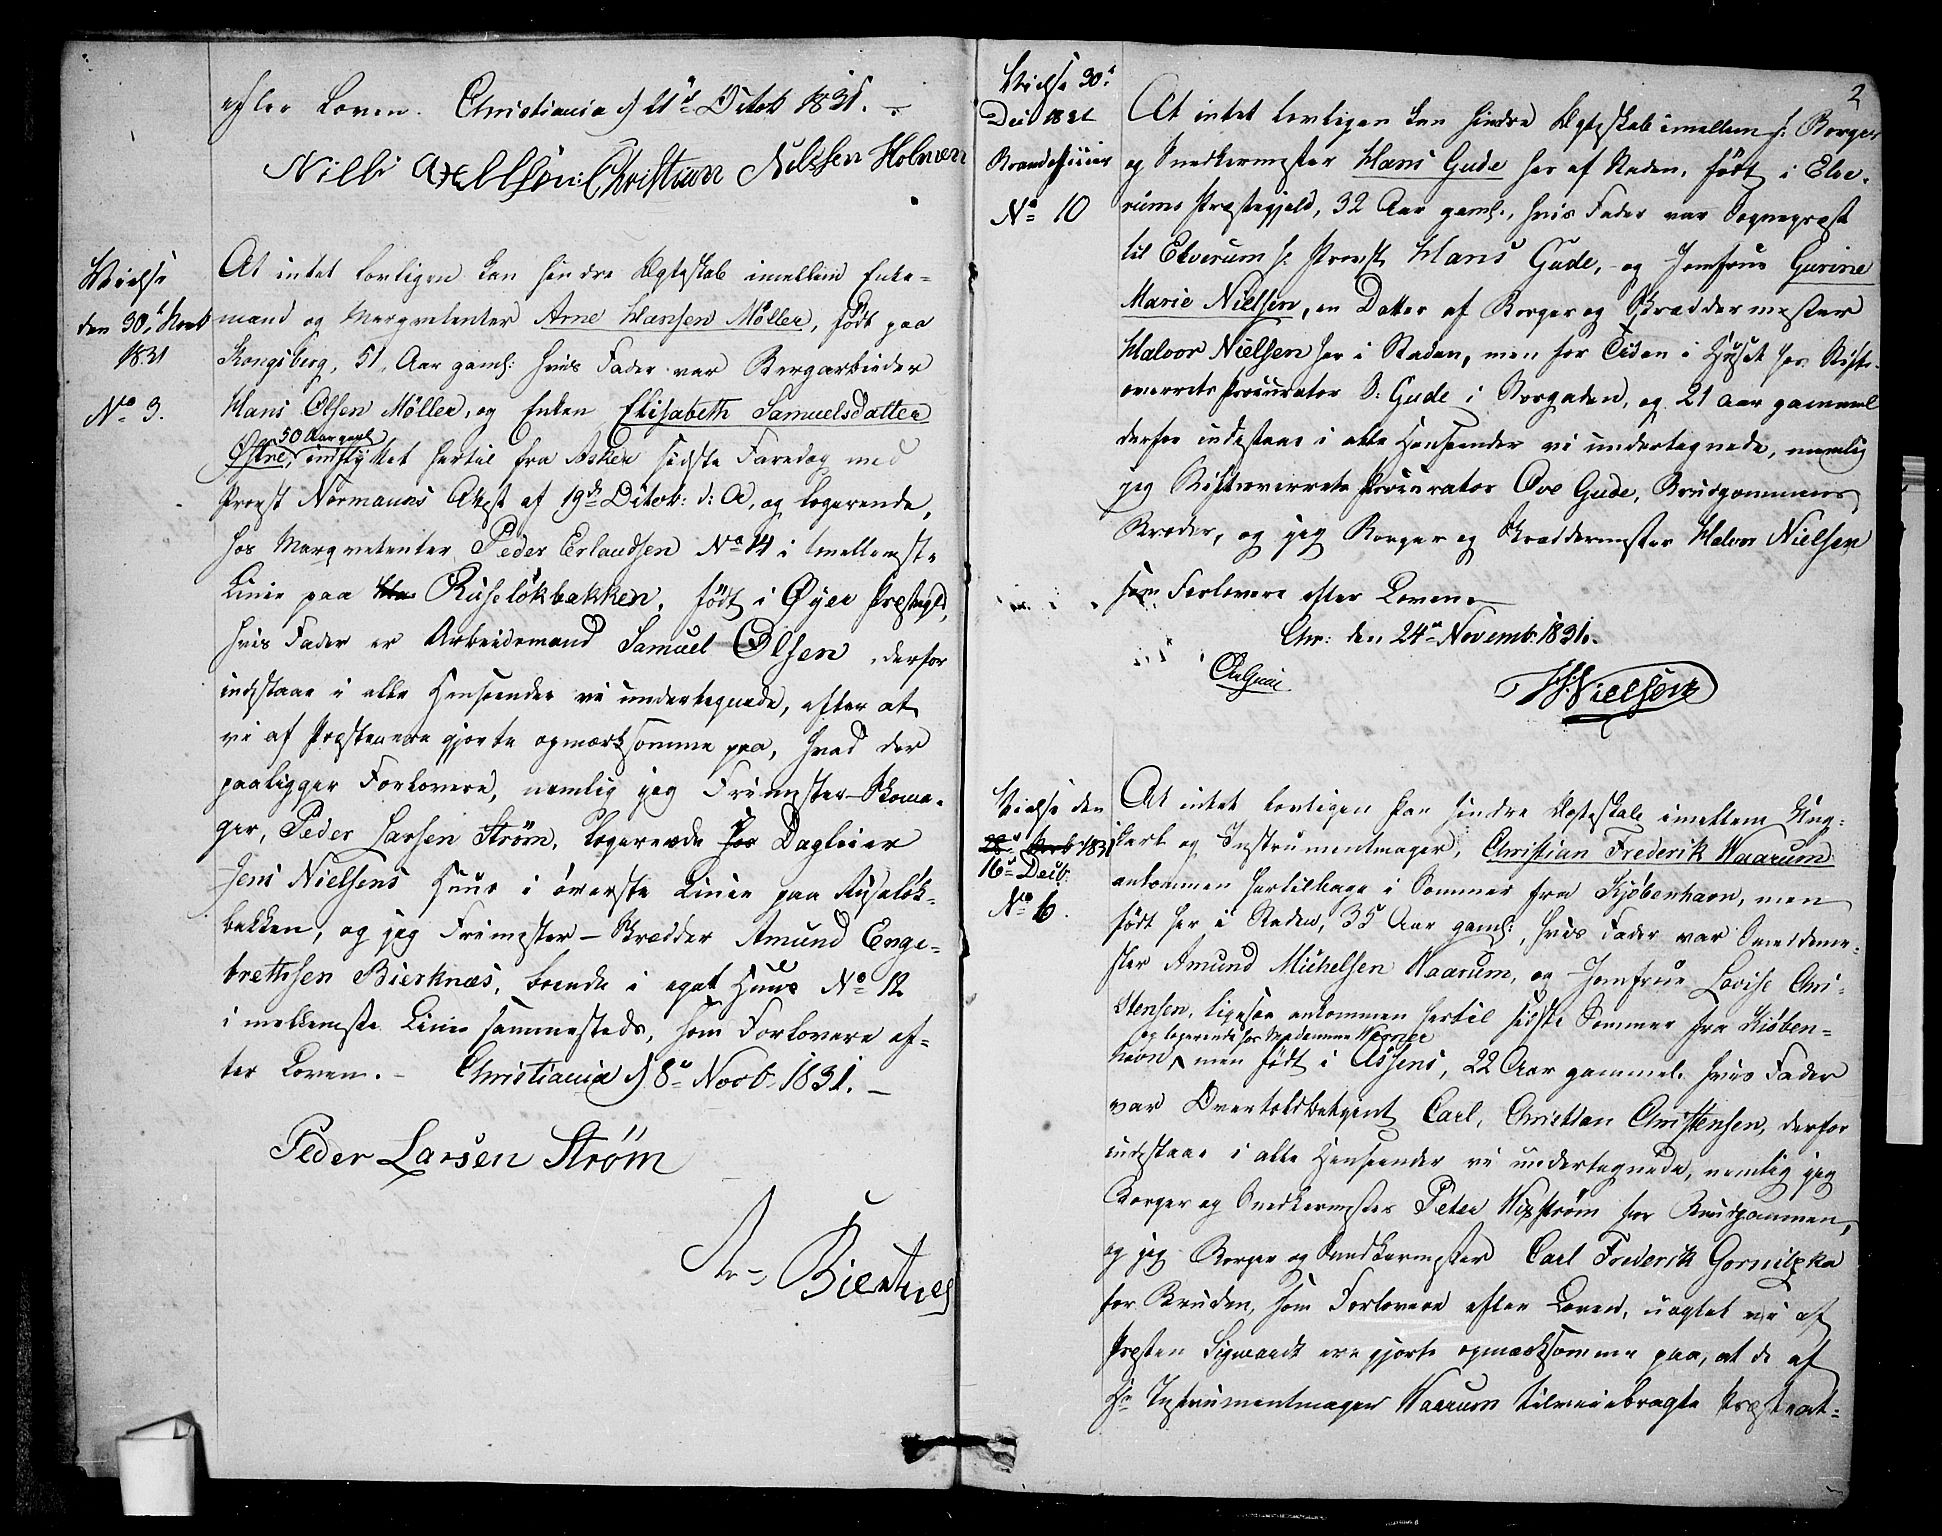 efter Loven. Christiania d 21de Octob 1831. –
Nills Axellsøn. Christian Nilssen Holmen
Vielse
den 30te Novb
1831
No 3.
At intet lovligen kan hindre Ægteskab imellem Enke-
mand og Marqvetenter Arne Hansen Møller, født paa
Kongsberg, 51 Aar gaml: hvis Fader var Bergarbeider
Hans Olsen Møller, og Enken Elisabeth Samuelsdatter
50 Aar gaml
Østne, indflyttet hertil fra Asker sidste Faredag med
Provst Normanns Attest af 19de Octob: d: A, og logerende
hos Marqvetenter Peder Erlandsen No 14 i mellemste
Linie paa Ruseløkbakken, født i Øyer Præstegjld,
hvis Fader er Arbeidsmand Samuel Olsen, derfor
indestaae i alle Henseender vi undertegnede, efter at
vi af Præsten ere gjorte opmærksomme paa, hvad der
paaligger Forlovere, nemlig jeg Frimester-Skoma-
ger, Peder Larsen Strøm, logerende hos Dagleier
Jens Nielsens Huus i øverste Linie paa Ruseløk-
bakken, og jeg Frimester-Skrædder Amund Enge-
brethsen Bierknæs, boende i eget Huus No 12
i mellemste Linie sammesteds, som Forlovere ef-
ter Loven. – Christiania d 8de Novb 1831. –
Peder Larsen Strøm
A Bierknes
2
Vielse 30te
Dec 1831
No 10
At intet lovligen kan hindre Ægteskab imellem hr Borger
og Snedkermester Hans Gude her af Staden, født i Elve-
rums Præstegjeld, 32 Aar gaml., hvis Fader var Sognepræst
til Elverum hr Provst Hans Gude, og Jomfrue Gurine
Marie Nielsen, en Datter af Borger og Skræddermester
Halvor Nielsen her i Staden, men for Tiden i Huset hos Stifts-
overrets Procurator O: Gude i Storgaden, og 21 Aar gammel
derfor indestaae i alle Henseender vi undertegnede, nemlig
jeg Stiftsoverrets Procurator Ove Gude, Brudgommens
Broder, og jeg Borger og Skræddermester Halvor Nielsen
som Forlovere efter Loven. –
Chr: den 24de Novemb: 1831.
O Gude
H Nielsen
Vielse den
28de Novb 1831
16de Decb.
No 6.
At intet lovligen kan hindre Ægteskab imellem Ung-
karl og Instrumentmager, Christian Frederik Waarum
ankommen hertilbage i Sommer fra Kjøbenhavn, men
født her i Staden, 35 Aar gaml:, hvis Fader var Smeddeme-
ster Amund Michelsen Waarum, og Jomfrue Lovise Chri-
stensen, ligesaa ankommen hertil sidste Sommer fra Kiøben-
og logerende hos Madamme Wegner
havn, men født i Assens, 22 Aar gammel. hvis Fader
var Overtoldbetjent Carl Christian Christensen, derfor
indestaae i alle Henseender vi undertegnede, nemlig jeg
Borger og Snedkermester Peter Wixstrøm for Brudgommen,
og jeg Borger og Snedkermester Carl Frederik Gornitzka
for Bruden, som Forlovere efter Loven, uagtet vi af
Præsten Sigwardt ere gjorte opmærksomme paa, at de af
hr Instrumentmager Waarum tilveiebragte Præsteat-